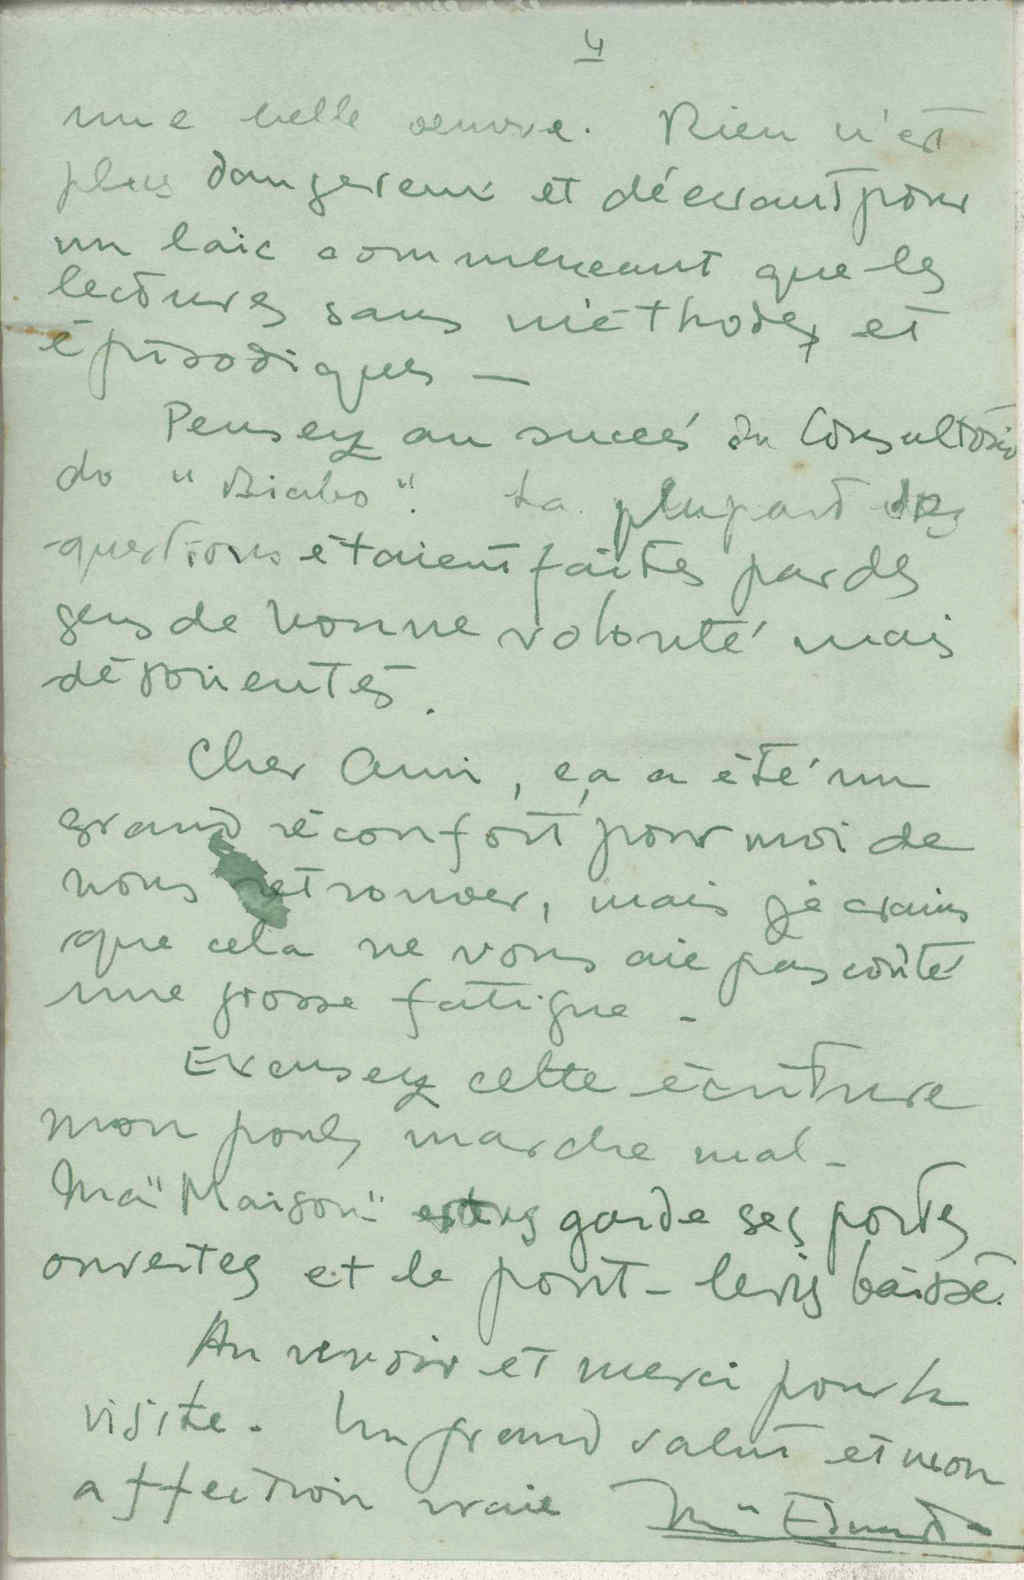 4
une belle oeuvre. Rien n'est
plus dangereux et décevant pour
un laïc commençant que les
lectures sans méthodes et
épisodiques —
Pensez au succés du Consultório
do "Diabo". La plupart des
questions étaient faites par des
gens de bonne volonté mais
désorientés.
Cher Ami, ça a été un
grand réconfort pour moi de
vous retrouver, mais je crains
que cela ne vous aie pas coûté
une grosse fatigue -
Excusez cette écriture
mon pouls marche mal -
Ma "Maison" garde ses portes
ouvertes et le pont-levis baissé.
Au revoir et merci pour la
visite. Un grand salut et mon
affection vraie